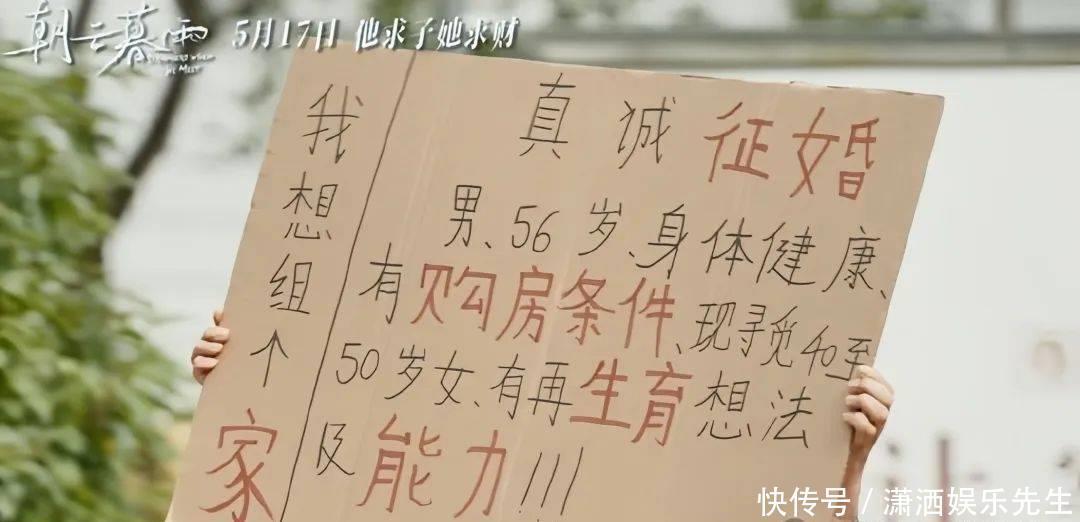 朝云暮雨
STRANGERS WHEN
WE MEET
5月17日 他求子她求财
我想组个家
真诚征婚
男、56岁、身体健康、
有购房条件、现寻觅40至
50岁女、有再生育想法
及能力!!!
快传号/潇洒娱乐先生